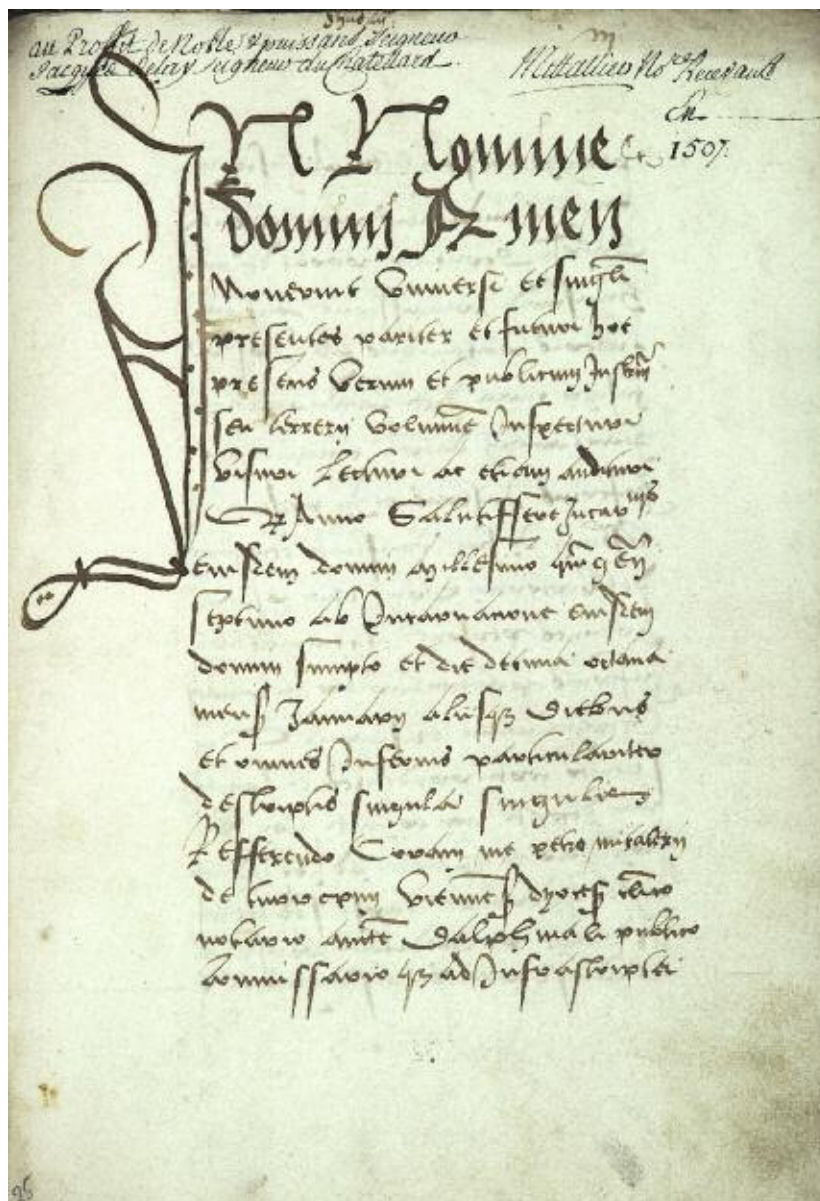 au Proffit de Noble & puissant Seigneur
Jacques Seigneur du Chatellard.
Mittallier No.re Recevant
En
1507.
In Nomine
domini Amen
Noverint Universi et singli
presentes pariter et futuri hoc
presens verum et publicum Instrm
seu terrerii volumē Inspecturi
visuri Lecturi ac etiam audituri
Anno Salutiffere Incar nis
eiusdem domini millesimo quīgen
septimo ab Incarnacione eiusdem
domini sumpto et die decima octava
mens Januarii aliisq diebus
et omnes Inferius particulariter
descriptis singula singulis
Refferendo Coram me petro mitalerii
de viennes dyoces clico
notario aucte Dalphinali publico
commissario q ad Infrascripta
26